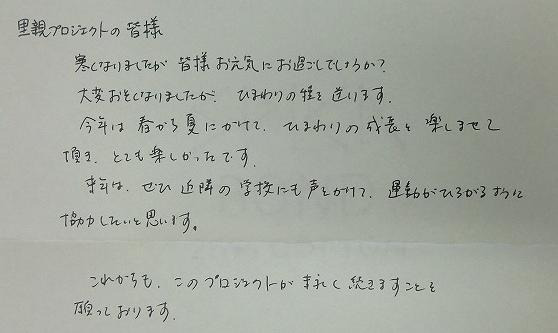 里親プロジェクトの皆様
寒くなりましたが 皆様お元気にお過ごしでしょうか?
大変おそくなりましたが、ひまわりの種を送ります。
今年は春から夏にかけて、ひまわりの成長を楽しませて
頂き、とても楽しかったです。
来年は、ぜひ近隣の学校にも声をかけて、運動がひろがるように
協力したいと思います。
これからも、このプロジェクトが末永く続きますことを
願っております。